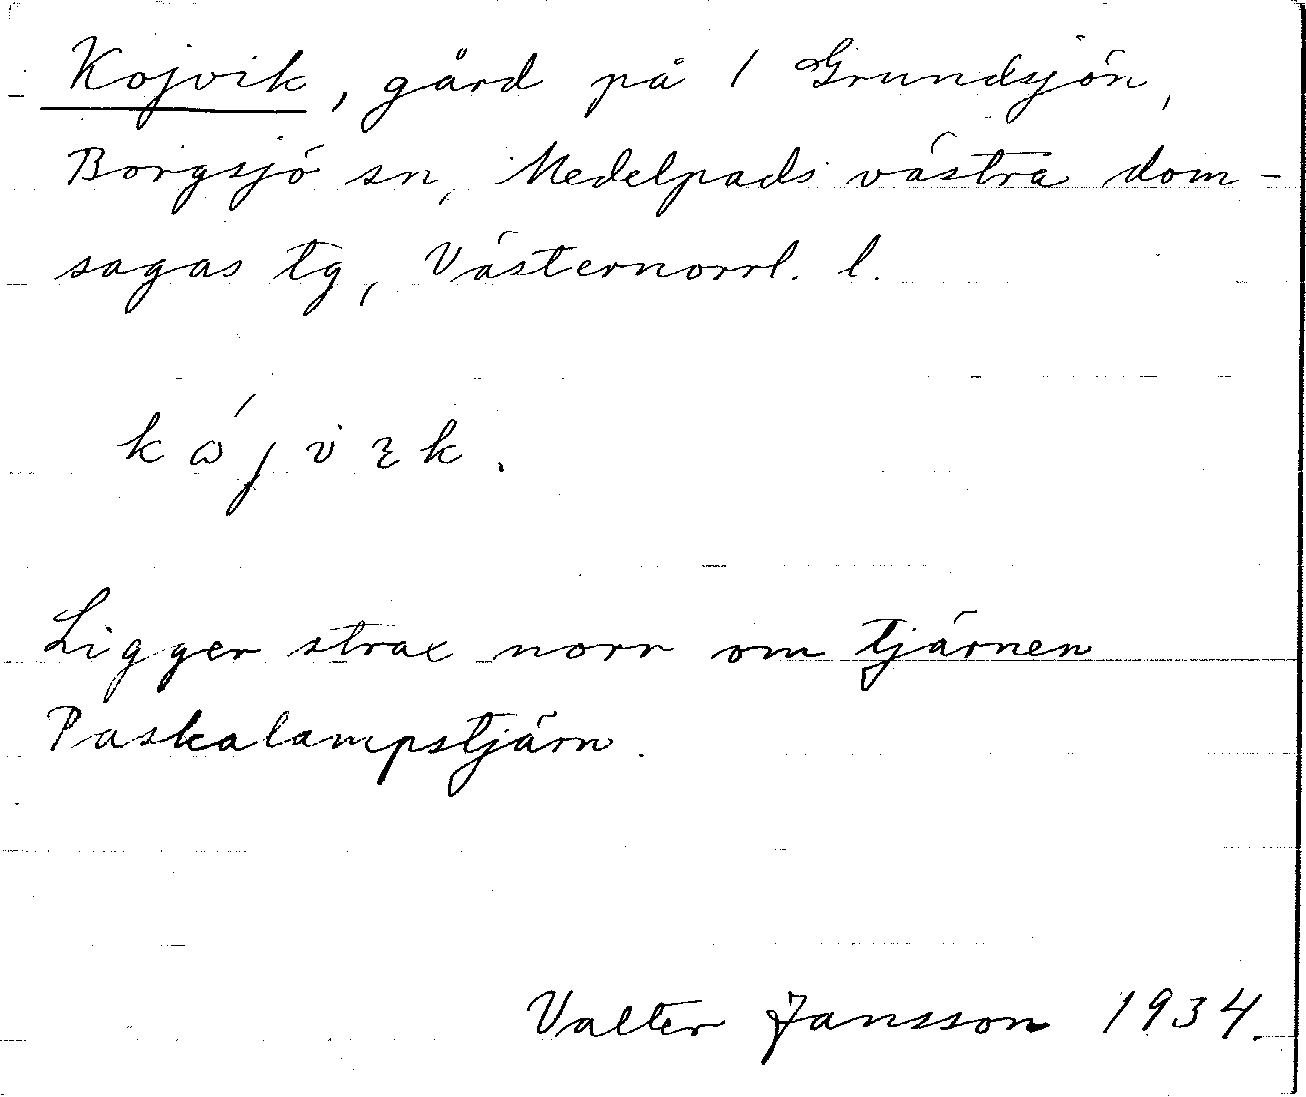 Kojvik, gård på 1 Grundsjön,
Borgsjö sn, Medelpads västra dom-
sagas tg, Västernorrl. l.
Ligger strax norr om tjärnen
Paskalampstjärn.
Valter Jansson 1934.